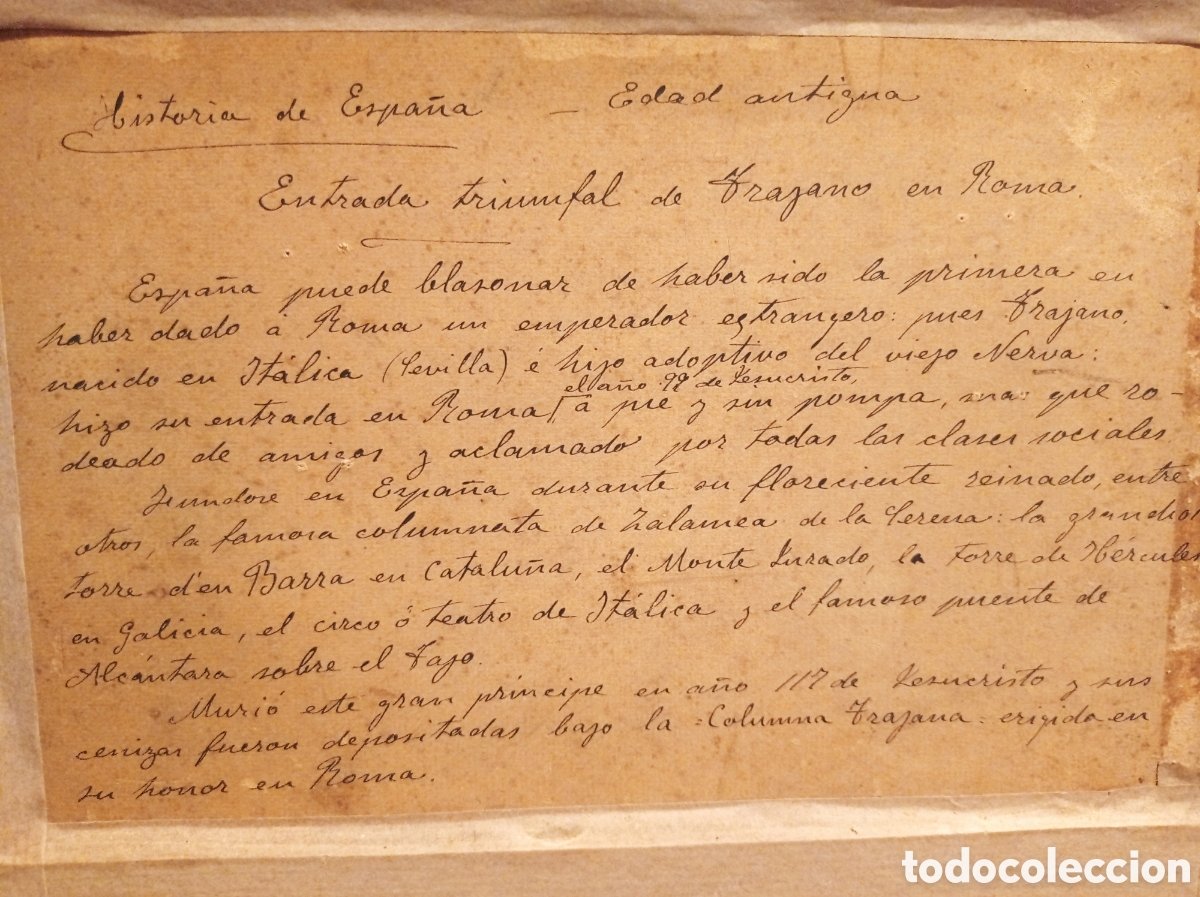 Historia de España — Edad antigua
Entrada triumfal de Trajano en Roma.
España puede blasonar de haber sido la primera en
haber dado á Roma un emperador extrangero: pues Trajano,
nacido en Itálica (Sevilla) é hijo adoptivo del viejo Nerva:
el año 99 de Jesucristo,
hizo su entrada en Roma á pie y sin pompa, mas que ro-
deado de amigos y aclamado por todas las clases sociales.
en España durante su floreciente reinado, entre
otros, la famosa columnata de Zalamea de la Serena: la grandiosa
torre d'en Barra en Cataluña, el Monte Furado, la torre de Hércules
en Galicia, el circo ó teatro de Itálica y el famoso puente de
Alcántara sobre el Tajo.
Murió este gran príncipe en año 117 de Jesucristo y sus
cenizas fueron depositadas bajo la =Columna Trajana= erigida en
su honor en Roma.
todocoleccion